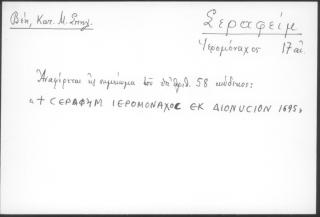 Βέη, Κατ. Μ. Σπηλ.
Σεραφείμ
Ἱερομόναχος 17 αἰ.
Ἀναφέρεται εἰς σημείωμα τοῦ ὑπ' ἀριθ. 58 κώδικος:
"+ CΕΡΑΦΗΜ ΙΕΡΟΜΟΝΑΧΟC ΕΚ ΔΙΟΝVCΙΟΝ 1695"